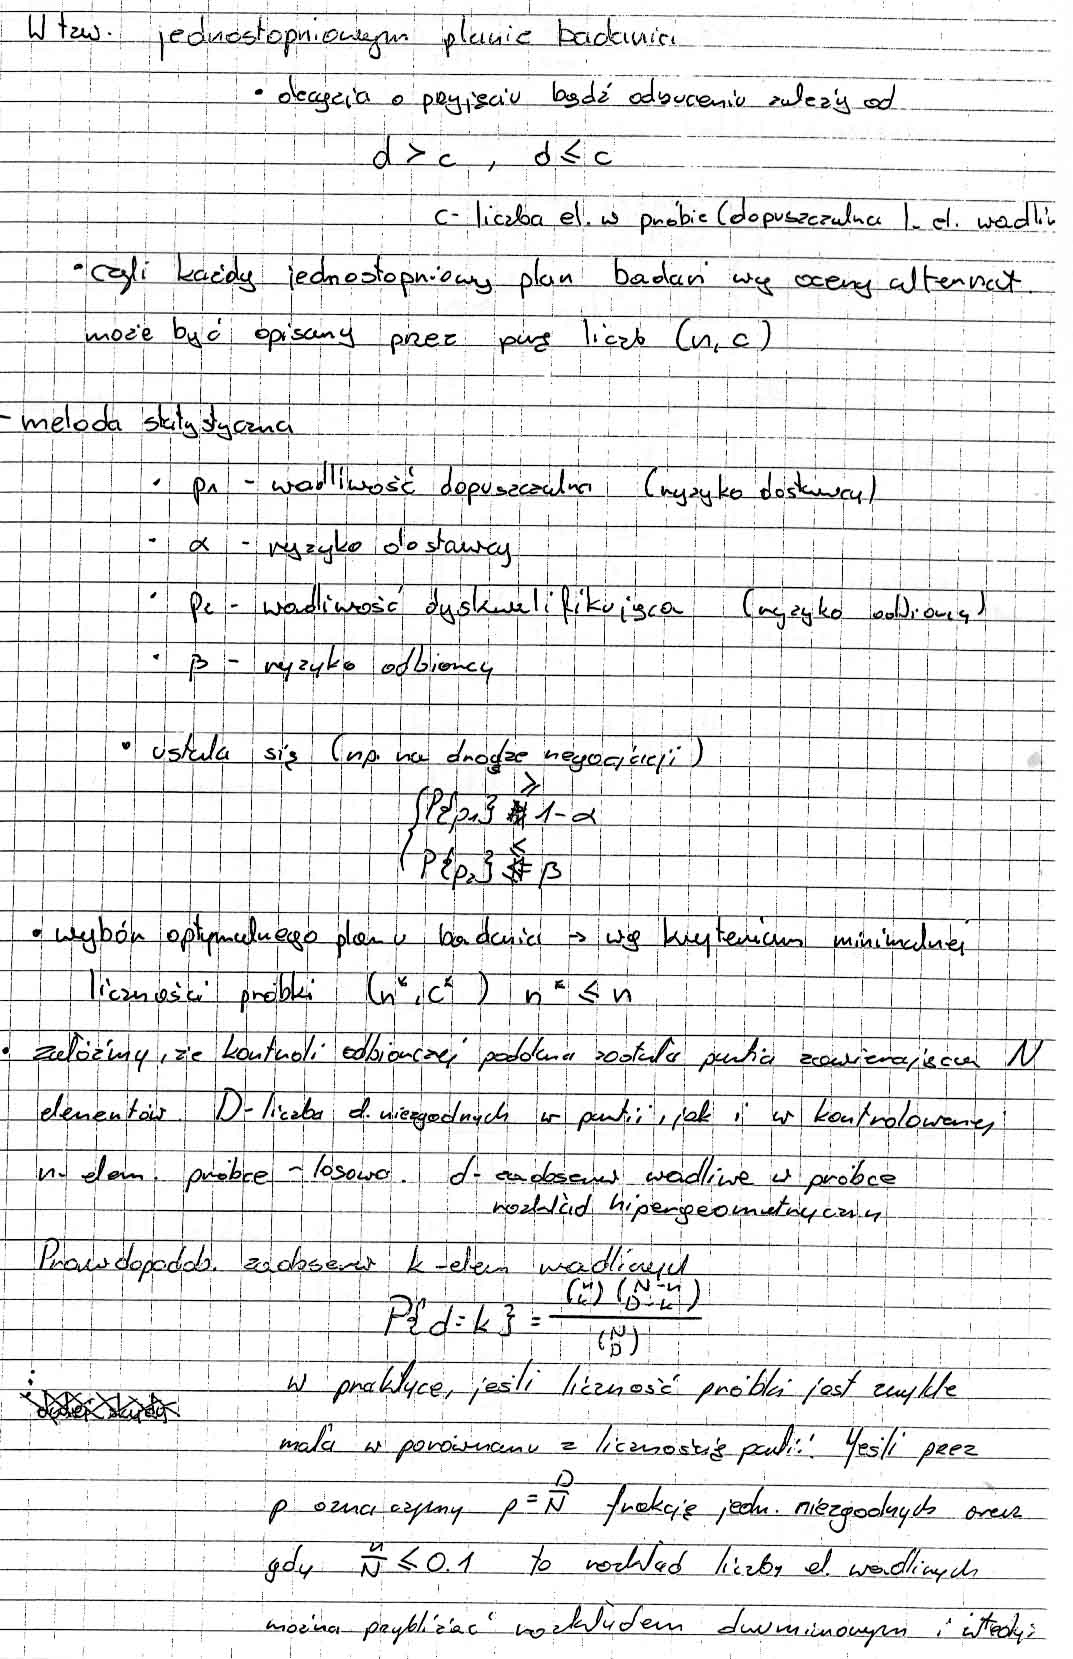 W tzw. jednostopniowym planie badania
• decyzja o przyjęciu bądź odrzuceniu zależy od
d > c , d ≤ c
c - liczba el. w próbie (dopuszczalna l. el. wadli
• czyli każdy jednostopniowy plan badań wg oceny alternat.
może być opisany przez parę liczb (n, c)
- metoda statystyczna
• p₁ - wadliwość dopuszczalna (ryzyko dostawcy)
• α - ryzyko dostawcy
• p₂ - wadliwość dyskwalifikująca (ryzyko odbiorcy)
• β - ryzyko odbiorcy
• ustala się (np. na drodze negocjacji)
{ P{p₁} ≥ 1-α
P{p₂} ≤ β
• wybór optymalnego planu badania → wg kryterium minimalnej
liczności próbki (n*, c*) n* ≤ n
• załóżmy, że kontroli odbiorczej poddana została partia zawierająca N
elementów. D - liczba el. niezgodnych w partii, jak i w kontrolowanej
n - elem. próbce - losowa. d - zaobserw wadliwe w próbce
rozkład hipergeometryczny
Prawdopodob. zaobserw k - elem wadliwych
P{d = k} = (n k) (N-n D-k) / (N D)
w praktyce, jeśli liczność próbki jest zwykle
mała w porównaniu z licznością partii. Jeśli przez
p oznaczymy p = D/N frakcję jedn. niezgodnych oraz
gdy n/N ≤ 0.1 to rozkład liczby el. wadliwych
można przybliżać rozkładem dwumianowym i wtedy: